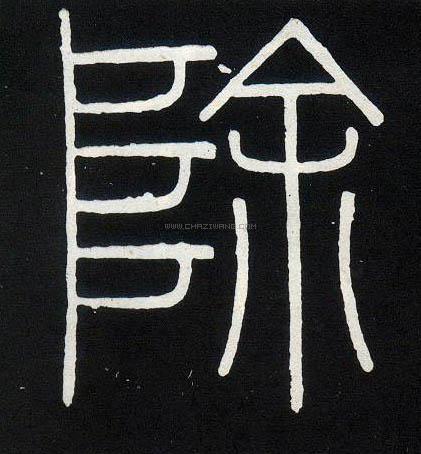 除
WWW.CHAZIWANG.COM